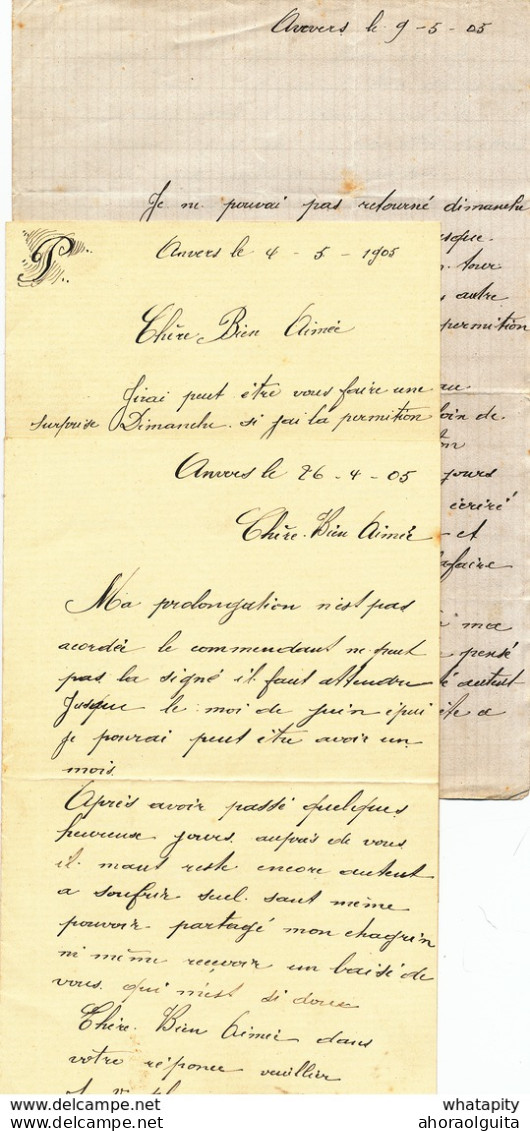 Anvers le 9 - 5 - 05
Je ne pouvai pas retourné dimanche
tour
autre
permition
P
Anvers le 4 - 5 - 1905
Chère Bien Aimée
J'irai peut être vous faire une
surprise Dimanche si jai la permition
loin de
jours
écriré
et
ma
pensé
autent
Anvers le 26 - 4 - 05
Chère Bien Aimée
Ma prolongation n'est pas
acordée le commendant ne peut
pas la signé il faut attendre
Jusque le moi de juin épui
je pourai peut être avoir un
mois.
Après avoir passé quelques
heureuse jours auprès de vous
il maut reste encore autent
a soufrir seul sant même
pouvoir partagé mon chagrin
ni même recevoir un baisé de
vous qui m'est si doux
Chère Bien Aimée dans
votre réponce veuillier
whatapity
delcampe.net
ahoraolguita